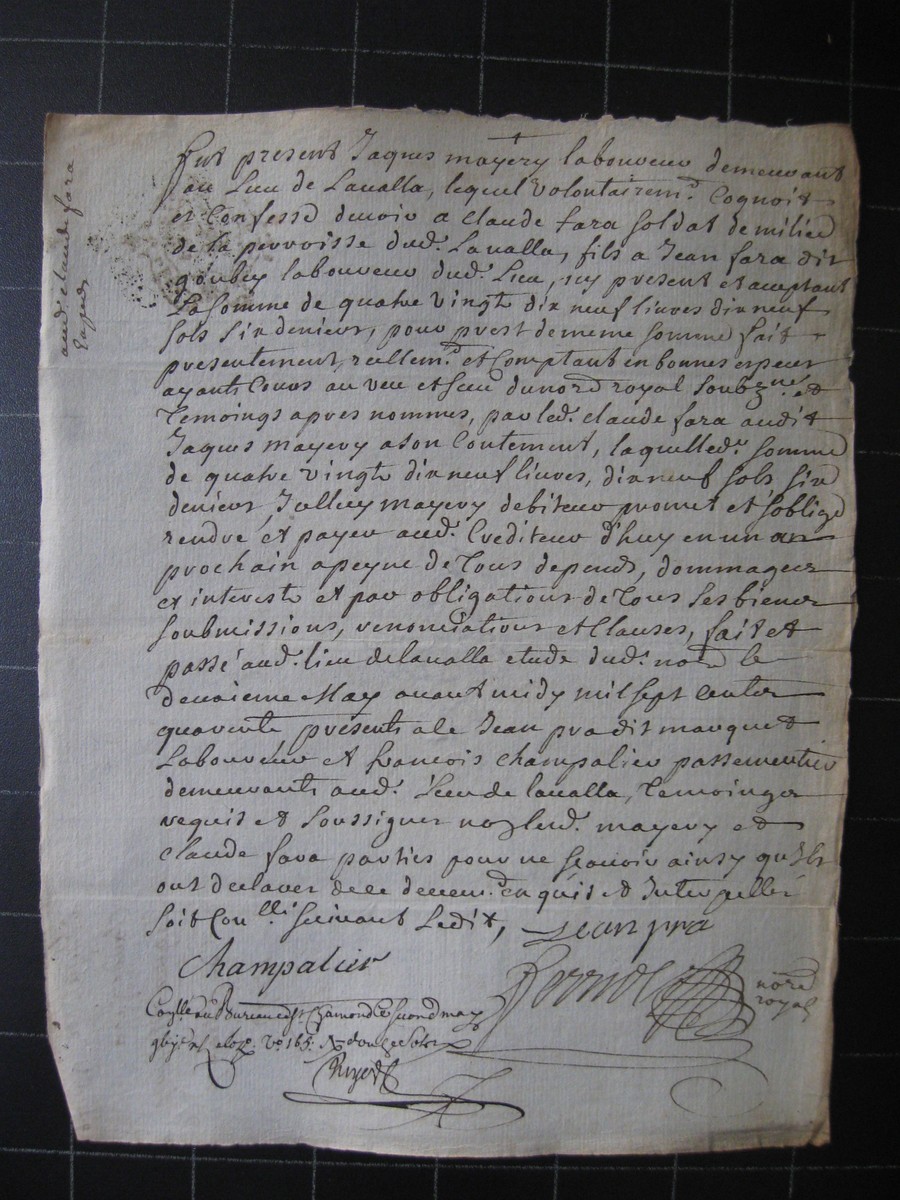 aud. claude fara
Fut present Jaques mayery laboureur demeurant
au Lieu de Lavalla, lequel volontairemt. Cognoit
et Confesse devoir a claude fara soldat de milice
de la parroisse dud. Lavalla, fils a Jean fara dit
goubey laboureur dud. Lieu, icy present et aceptant
La somme de quatre vingt dix neuf livres dix neuf
sols six deniers, pour prest de meme somme fait
presentement, reellemt. et Comptant en bonnes especes
ayants Cours au veu et sceu du nore royal soubzne. et
Temoings apres nommes, par led. claude fara audit
Jaques mayery a son Contement, laquelle de. somme
de quatre vingt dix neuf livres, dix neuf sols six
deniers, Icelluy mayery debiteur promet et s'oblige
rendre et payer aud. Crediteur d'huy en un an
prochain a peyne de Tous depends, dommages
et interests et par obligations de Tous ses biens
soubmissions, renonciations et Clauses, fait et
passé aud. lieu de lavalla etude dud. nore le
deuxieme May avant midy mil sept cents
quarente presents a ce Jean pra dit marquet
Laboureur et francois champalier passementier
demeurants aud. Lieu de lavalla, Temoings
requis et soussignes non led. mayery et
claude fara parties pour ne scavoir ainsy qu'ils
ont declarer de ce deuemt. enquis et Interpellés
soit Conllé suivant Ledit, Jean pra
Champalier
nore
royal
Conlle au Bureau de St Chamond le second may